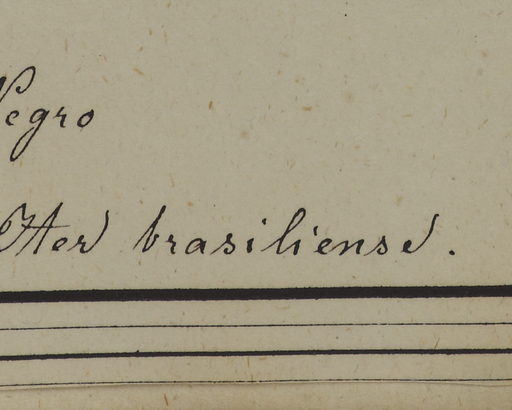 Negro
Iter brasiliense.